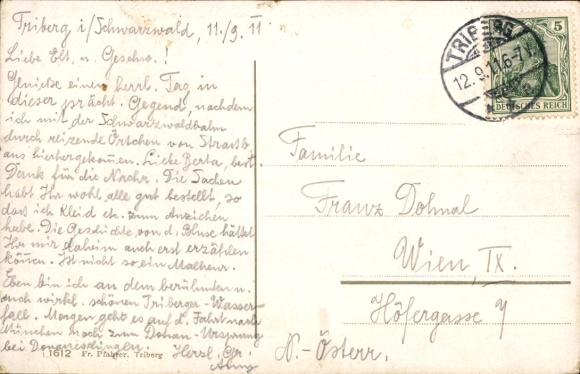 Triberg i/Schwarzwald, 11./9. 11
Liebe Elt. u. Geschw.!
Genieße einen herrl. Tag in
dieser prächt. Gegend, nachdem
ich mit der Schwarzwaldbahn
durch reizende Örtchen von Strassb.
aus hierhergekommen. Liebe Berta, best.
Dank für die Nachr. Die Sachen
habt Ihr wohl alle gut bestellt, so
dass ich Kleid etc. zum Anziehen
habe. Die Geschichte von d. Bluse hättet
Ihr mir daheim auch erst erzählen
können. Ist nicht so ein Malheur.
Eben bin ich an dem berühmten u.
auch wirkl. schönen Triberger-Wasser-
fall. Morgen geht es auf d. Fahrt nach
München noch zum Donau-Ursprung
bei Donaueschingen. Herzl. Gr.
1612 Fr. Pfahrer, Triberg
TRIBERG
12.9.11.6-7V.
5
DEUTSCHES REICH
Familie
Franz Dohnal
Wien, IX.
Höfergasse
N.-Österr.